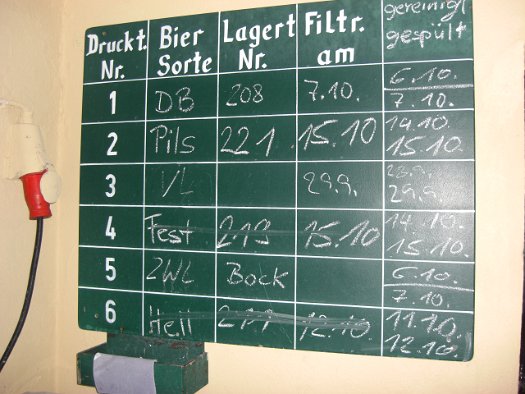 Druckt. Nr. Bier Sorte Lagert Nr. Filtr. am gereinigt gespült
1 DB 208 7.10. 6.10. 7.10.
2 Pils 221 15.10 14.10. 15.10.
3 VL 29.9. 28.9. 29.9.
4 Fest 219 15.10 14.10. 15.10.
5 ZWL Bock 6.10. 7.10.
6 Hell 12.10. 11.10. 12.10.